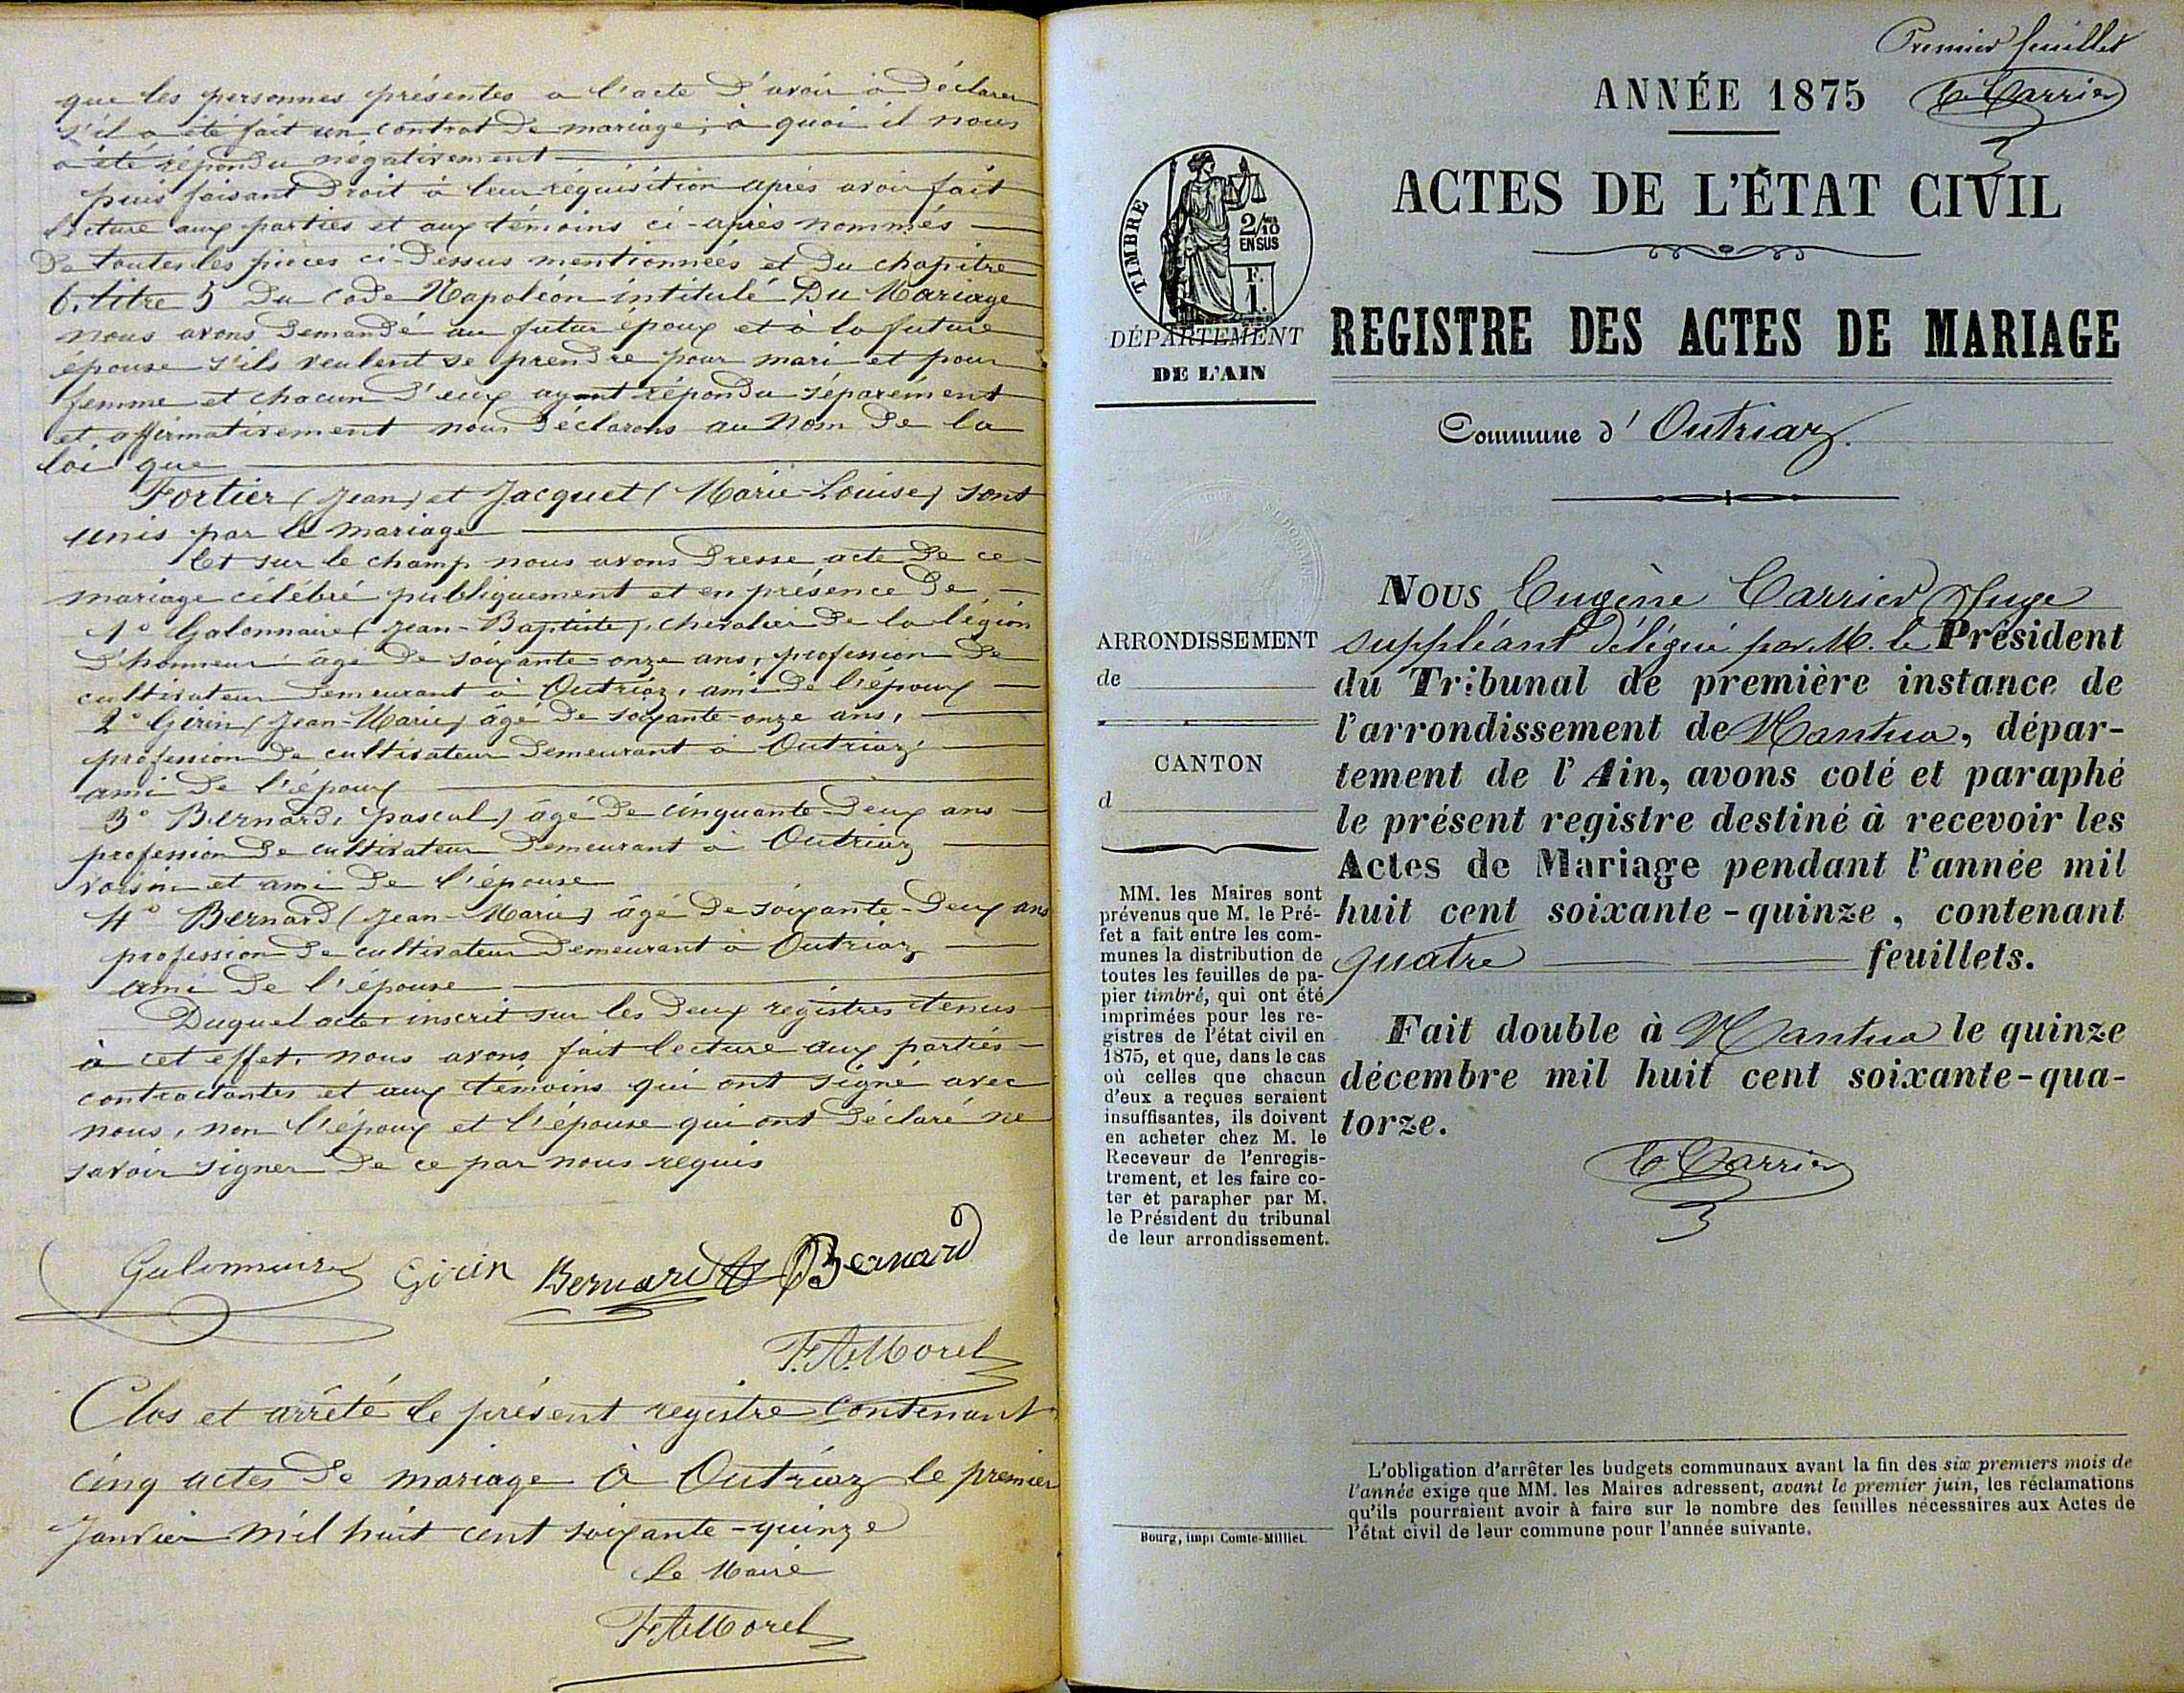 que les personnes présentes a l'acte d'avoir à déclarer
s'il a été fait un contrat de mariage; à quoi il nous
a été répondu négativement
puis faisant droit à leur réquisition après avoir fait
lecture aux parties et aux témoins ci-après nommés
de toutes les pièces ci-dessus mentionnées et du chapitre
6. titre 5 du code Napoléon intitulé Du Mariage
nous avons demandé au futur époux et à la future
épouse s'ils veulent se prendre pour mari et pour
femme et chacun d'eux ayant répondu séparément
et affirmativement nous déclarons au nom de la
loi que
Fortier (Jean) et Jacquet (Marie-Louise) sont
unis par le mariage
Et sur le champ nous avons dressé acte de ce
mariage célébré publiquement et en présence de
1° Galonnaire (Jean-Baptiste), chevalier de la légion
d'honneur âgé de soixante-onze ans, profession de
cultivateur demeurant à Outriaz, ami de l'époux
2° Girin (Jean-Marie) âgé de soixante-onze ans,
profession de cultivateur demeurant à Outriaz,
ami de l'époux
3° Bernard, Pascal) âgé de cinquante-deux ans
profession de cultivateur demeurant à Outriaz
voisin et ami de l'épouse
4° Bernard (Jean-Marie) âgé de soixante-deux ans
profession de cultivateur demeurant à Outriaz
ami de l'épouse
Duquel acte, inscrit sur les deux registres tenus
à cet effet, nous avons fait lecture aux parties
contractantes et aux témoins qui ont signé avec
nous, non l'époux et l'épouse qui ont déclaré ne
savoir signer de ce par nous requis
Galonnaire Girin Bernard Bernard
F.A. Morel
Clos et arrêté le présent registre contenant
cinq actes de mariage à Outriaz le premier
Janvier mil huit cent soixante-quinze
Le Maire
F A Morel
Premier feuillet
ANNÉE 1875 E. Carrier
ACTES DE L'ÉTAT CIVIL
TIMBRE
2/10
EN SUS
F.
1.
DÉPARTEMENT
DE L'AIN
REGISTRE DES ACTES DE MARIAGE
Commune d' Outriaz.
ARRONDISSEMENT
de
CANTON
d
MM. les Maires sont
prévenus que M. le Pré-
fet a fait entre les com-
munes la distribution de
toutes les feuilles de pa-
pier timbré, qui ont été
imprimées pour les re-
gistres de l'état civil en
1875, et que, dans le cas
où celles que chacun
d'eux a reçues seraient
insuffisantes, ils doivent
en acheter chez M. le
Receveur de l'enregis-
trement, et les faire co-
ter et parapher par M.
le Président du tribunal
de leur arrondissement.
Nous Eugène Carrier Juge
suppléant délégué par M. le Président
du Tribunal de première instance de
l'arrondissement de Nantua, dépar-
tement de l'Ain, avons coté et paraphé
le présent registre destiné à recevoir les
Actes de Mariage pendant l'année mil
huit cent soixante-quinze, contenant
quatre feuillets.
Fait double à Nantua le quinze
décembre mil huit cent soixante-qua-
torze.
E. Carrier
L'obligation d'arrêter les budgets communaux avant la fin des six premiers mois de
l'année exige que MM. les Maires adressent, avant le premier juin, les réclamations
qu'ils pourraient avoir à faire sur le nombre des feuilles nécessaires aux Actes de
l'état civil de leur commune pour l'année suivante.
Bourg, imp. Comte-Milliet.